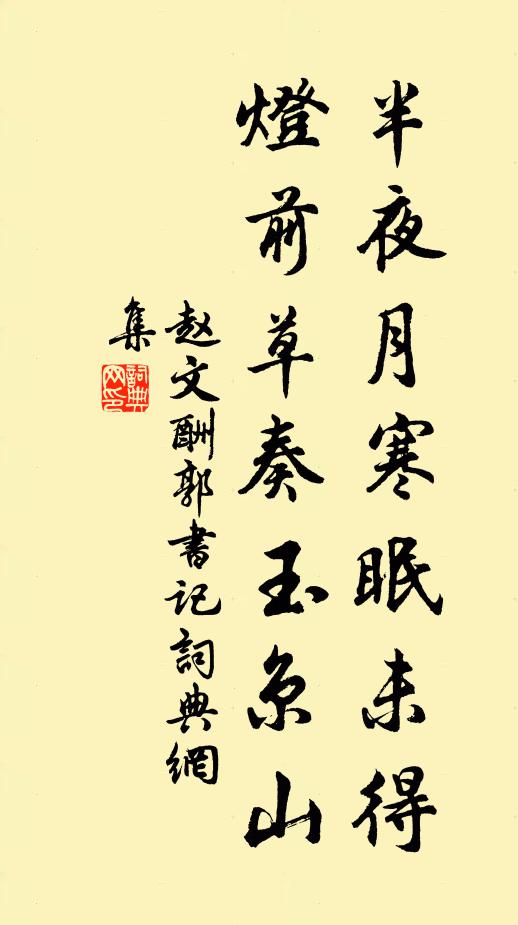 半夜月寒眠未得
燈前草奏玉京山
赵文酬郭書记詞典網
集
詞典
网印